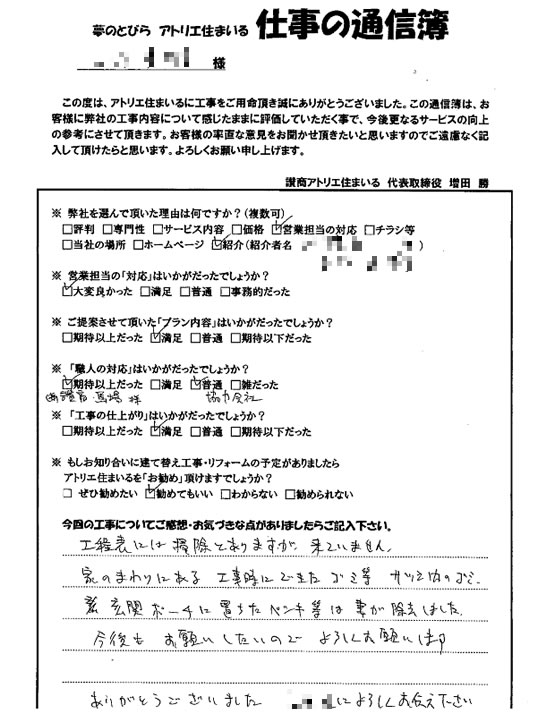 夢のとびら アトリエ住まいる 仕事の通信簿
様
この度は、アトリエ住まいるに工事をご用命頂き誠にありがとうございました。この通信簿は、お
客様に弊社の工事内容について感じたままに評価していただく事で、今後更なるサービスの向上
の参考にさせて頂きます。お客様の率直な意見をお聞かせ頂きたいと思いますのでご遠慮なく記
入して頂けたらと思います。よろしくお願い申し上げます。
讃商アトリエ住まいる 代表取締役 増田 勝
※ 弊社を選んで頂いた理由は何ですか?(複数可)
□評判 □専門性 □サービス内容 □価格 ☑営業担当の対応 □チラシ等
□当社の場所 □ホームページ ☑紹介(紹介者名 )
※ 営業担当の「対応」はいかがだったでしょうか?
☑大変良かった □満足 □普通 □事務的だった
※ ご提案させて頂いた「プラン内容」はいかがだったでしょうか?
□期待以上だった ☑満足 □普通 □期待以下だった
※ 「職人の対応」はいかがだったでしょうか?
☑期待以上だった □満足 ☑普通 □雑だった
馬場 様 協力会社
※ 「工事の仕上がり」はいかがだったでしょうか?
□期待以上だった ☑満足 □普通 □期待以下だった
※ もしお知り合いに建て替え工事・リフォームの予定がありましたら
アトリエ住まいるを「お勧め」頂けますでしょうか?
□ ぜひ勧めたい ☑勧めてもいい □わからない □勧められない
今回の工事についてご感想・お気づきな点がありましたらご記入下さい。
工程表には掃除とありますが、来ていません。
家のまわりにある 工事時にできた ゴミ等 サッシ内のゴミ、
玄関ポーチに置ちたペンキ等は妻が除去しました。
今後も お願いしたいので よろしくお願いします
ありがとうございました によろしくお伝え下さい